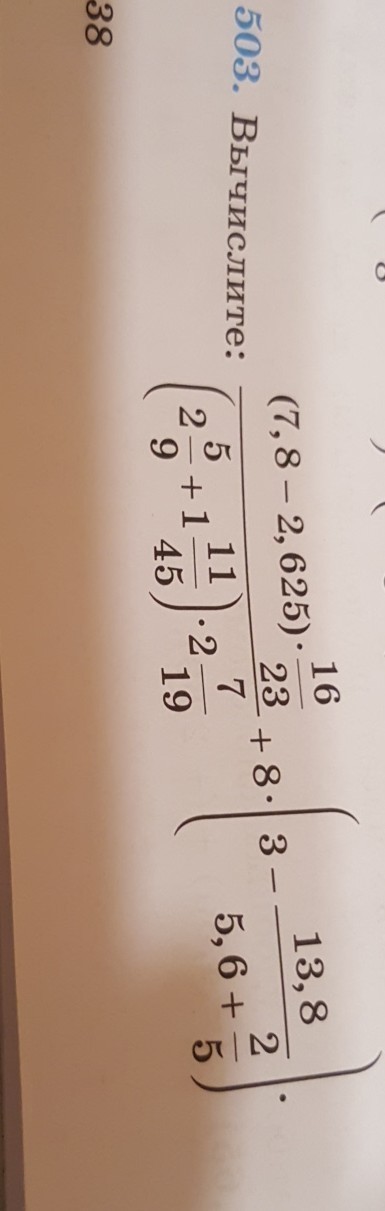 503. Вычислите: \frac{(7,8 – 2,625) \cdot \frac{16}{23}}{\left(2\frac{5}{9} + 1\frac{11}{45}\right) \cdot 2\frac{7}{19}} + 8 \cdot \left(3 – \frac{13,8}{5,6 + \frac{2}{5}}\right).
38